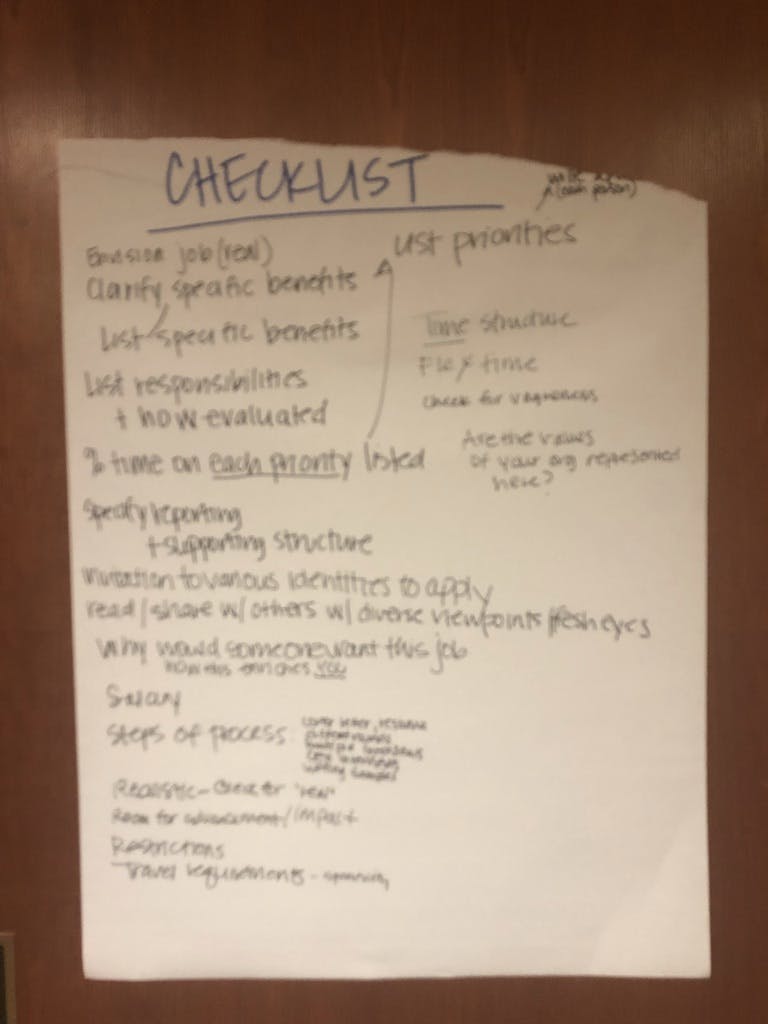 CHECKLIST
(each person)
Envision job (real)
List priorities
Clarify specific benefits
List specific benefits
Time structure
Flex time
List responsibilities
+ how evaluated
check for vagueness
% time on each priority listed
Are the values
of your org represented
here?
Specify reporting
+ supporting structure
invitation to various identities to apply
read/share w/ others w/ diverse viewpoints/fresh eyes
Why would someone want this job
how this enriches you
Salary
Steps of process
cover letter, resume
writing samples
Realistic - check for "real"
Room for advancement/impact
Restrictions
Travel requirements -